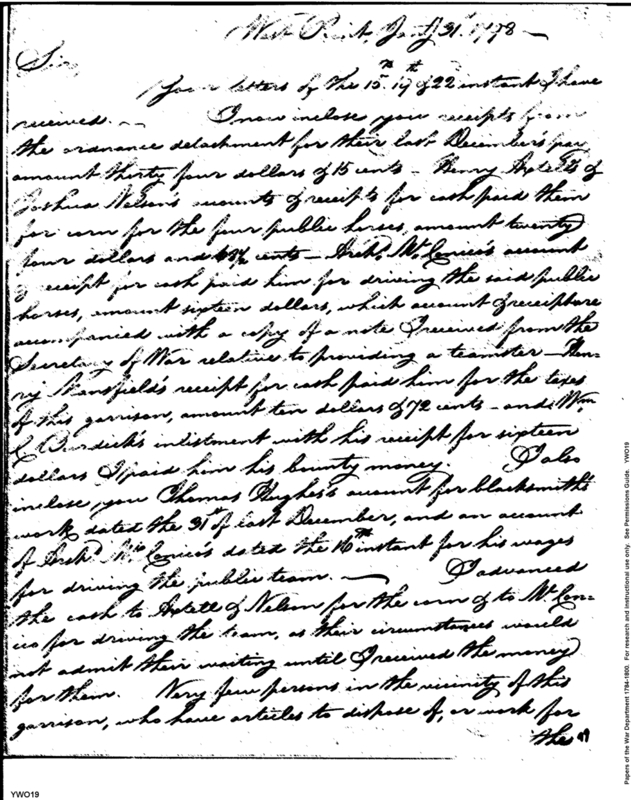 West Point, Jany 31st 1798 —
Sir,
Your letters of the 15th 19th & 22 instant I have
received. — I now inclose you receipts from
the ordnance detachment for their last December's pay
amount thirty four dollars & 15 cents — Henry Axtell's &
Joshua Nelson's accounts & receipts for cash paid them
for corn for the four public horses, amount twenty
four dollars and cents — Archd. McConico's account
& receipt for cash paid him for driving the said public
horses, amount sixteen dollars, which account & receipt are
accompanied with a copy of a note I received from the
Secretary of War relative to providing a teamster — Hen-
ry Mansfield's receipt for cash paid him for the taxes
of this garrison, amount ten dollars & 72 cents — and Wm.
C Burdick's inlistment with his receipt for sixteen
dollars I paid him his bounty money. I also
inclose you Thomas Hughes's account for blacksmith's
work dated the 31st of last December, and an account
of Archd. McConico's dated the 16th instant for his wages
for driving the public team. — I advanced
the cash to Axtell & Nelson for the corn & to McCon-
ico for driving the team, as their circumstances would
not admit their waiting until I received the money
for them. Very few persons in the vicinity of this
garrison, who have articles to dispose of, or work for
the
YWO19
Papers of the War Department 1784-1800. For research and instructional use only. See Permissions Guide. YWO19